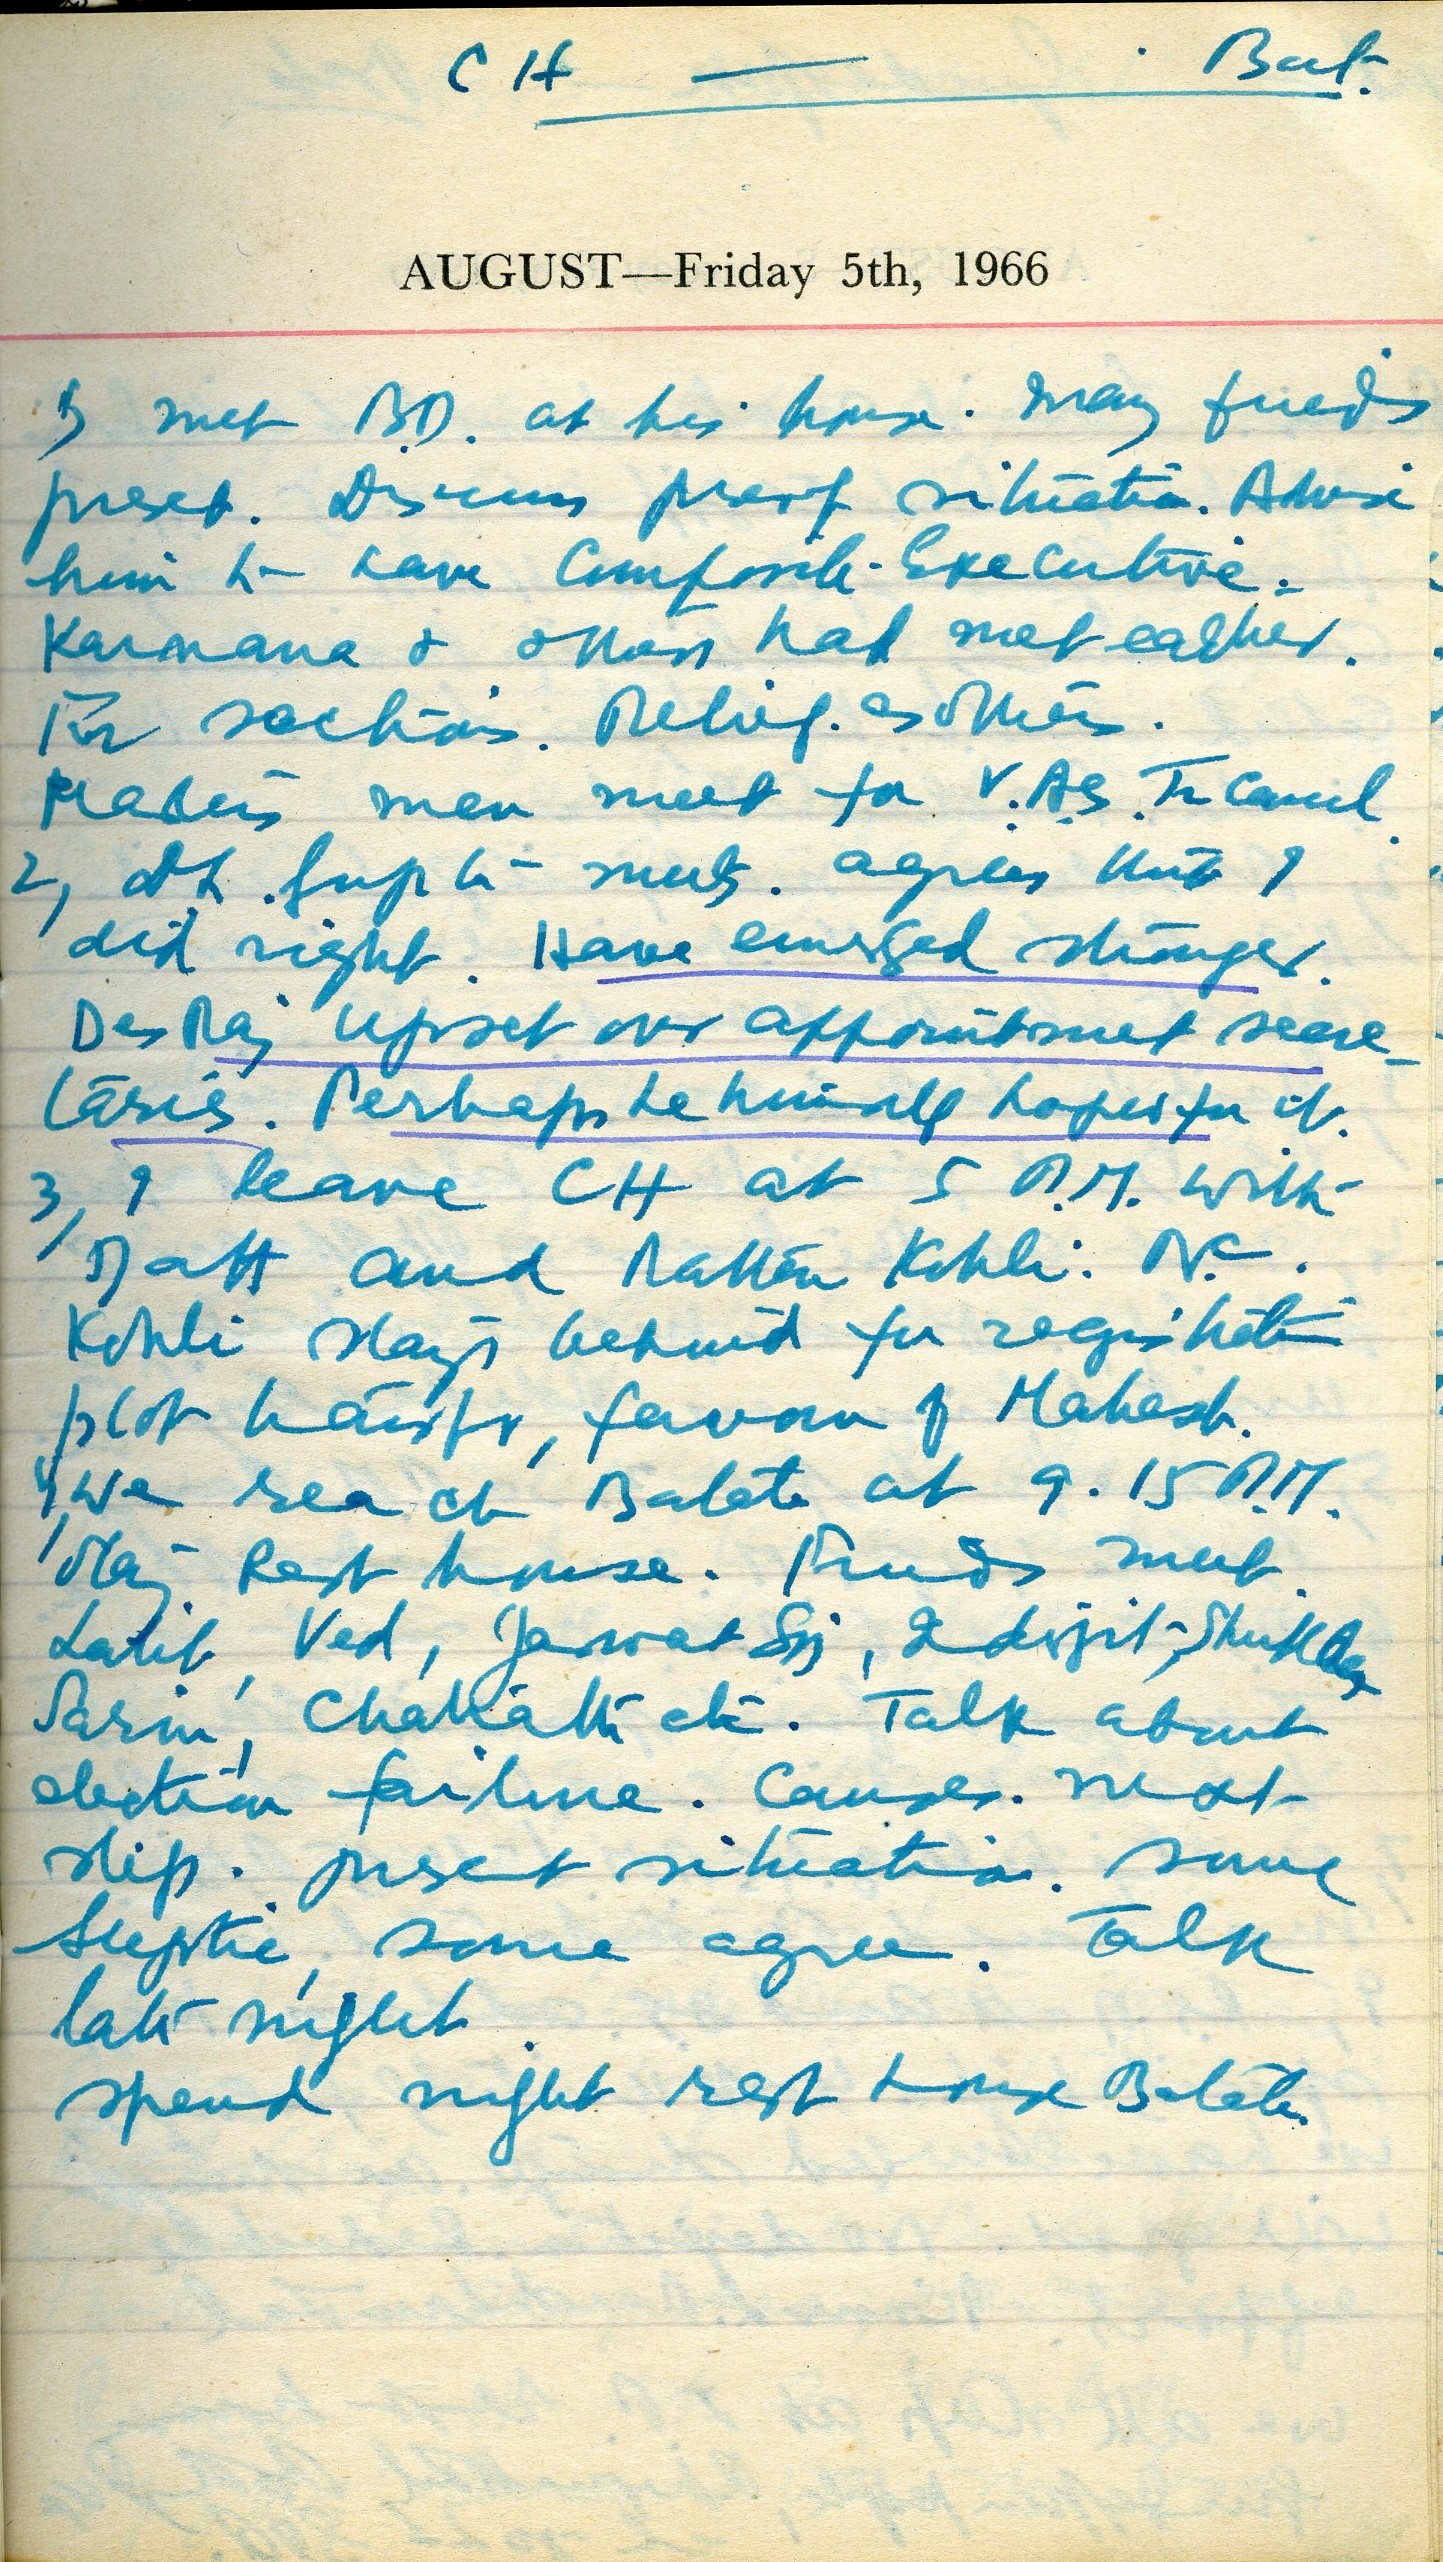 CH — Bat.
AUGUST—Friday 5th, 1966
1, met B.D. at his house. Many friends
present. Discuss situation. Advise
him to have Composite Executive.
Karnana & others had met earlier.
For sections. Relief. & others.
men meet for V.
2, Dr. Gupta meets. agrees that I
did right. Have emerged stronger.
Des Raj upset over appointment secre-
taries. Perhaps he himself hopes for it.
3, I leave CH at 5 P.M. with
Datt and Rattan Kohli. N.C.
Kohli stays behind for registration
plot transfer, favour of Mahesh.
4, We reach Batala at 9.15 P.M.
Stay Rest house. Friends meet.
Lalit, Ved, Jaswat Sg, Indrjit, Shukla,
Sarin, Chakratti etc. Talk about
election failure. Causes. Next
step. present situation. some
Skeptic, some agree. Talk
late night.
Spend night rest house Batala.